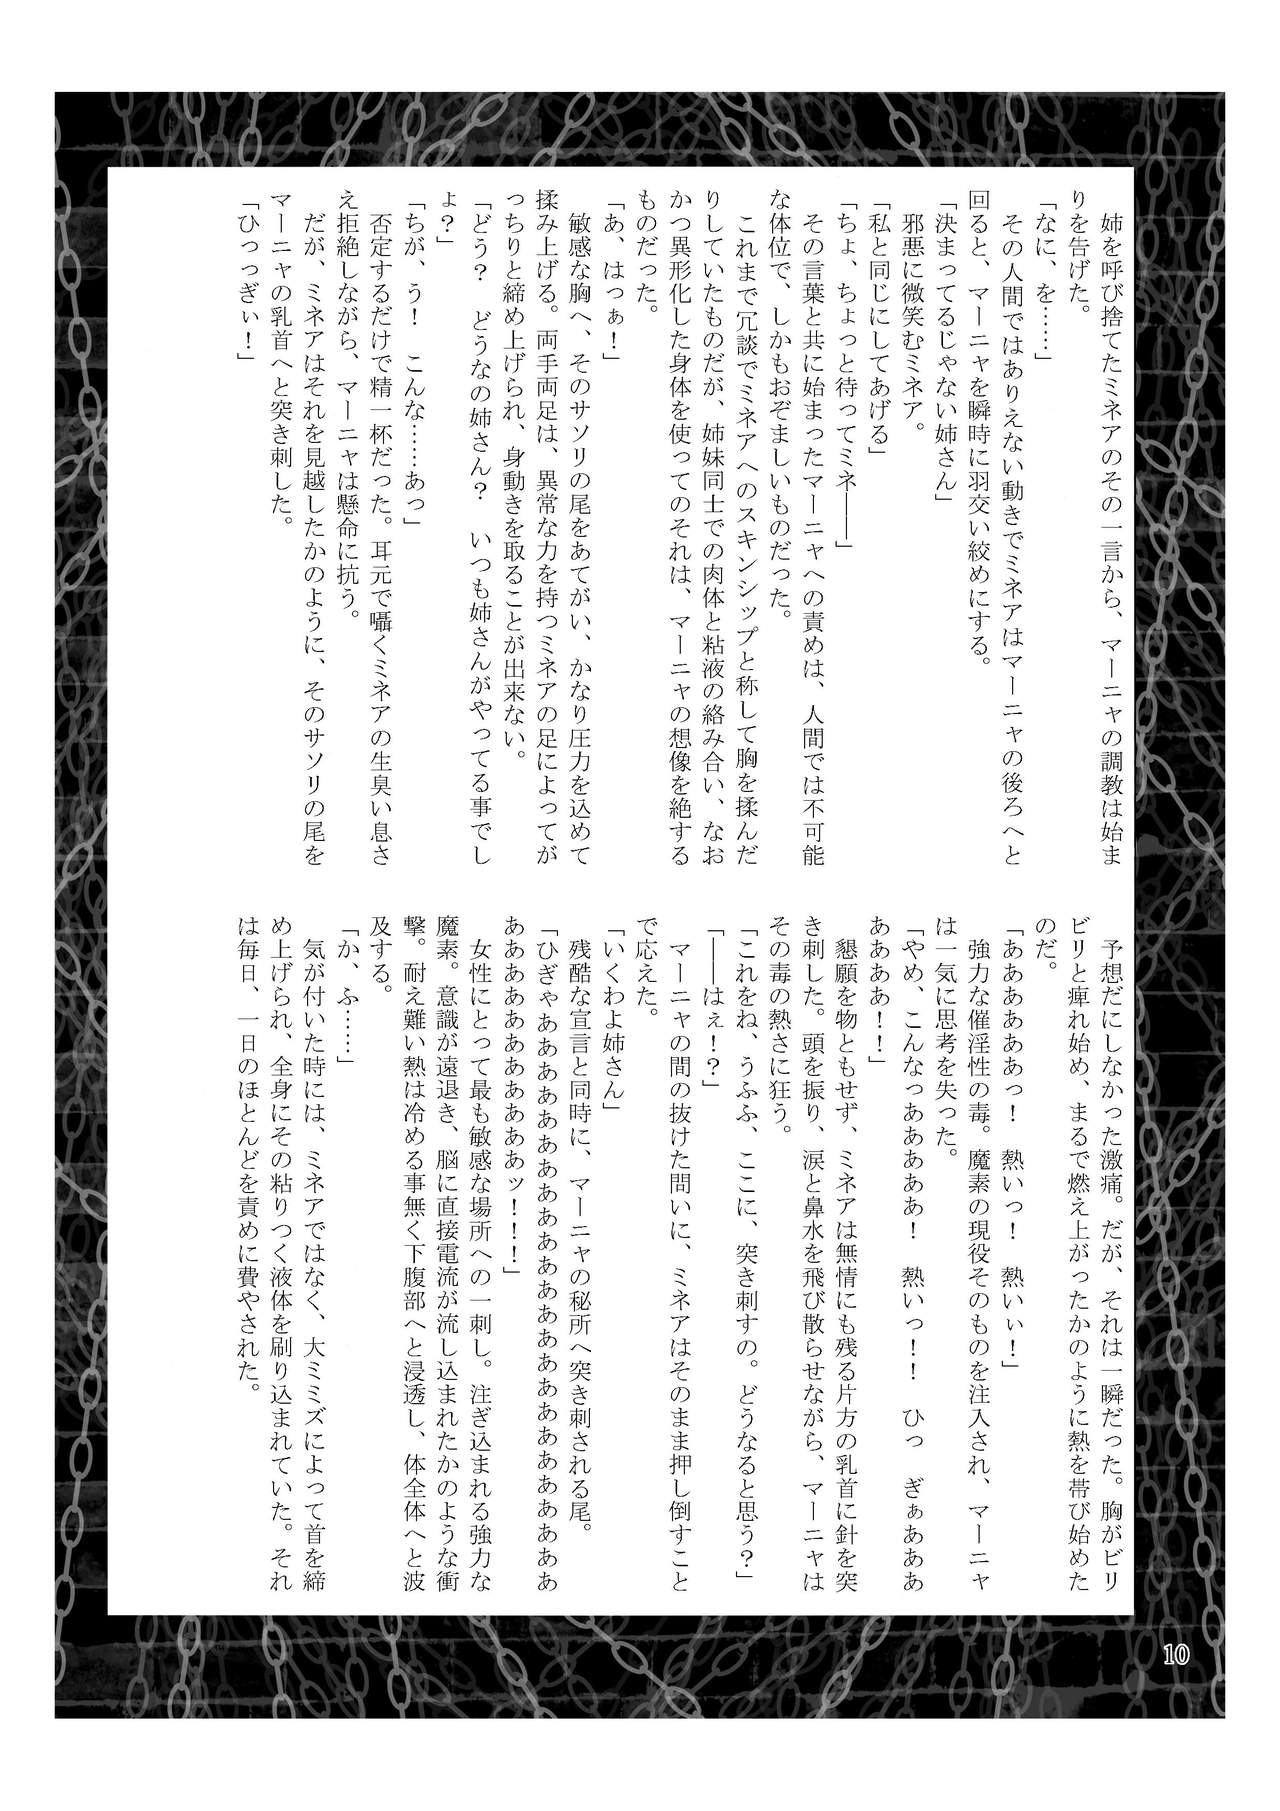 姉を呼び捨てたミネアのその一言から、マーニャの調教は始ま
りを告げた。
「なに、を……」
　その人間ではありえない動きでミネアはマーニャの後ろへと
回ると、マーニャを瞬時に羽交い絞めにする。
「決まってるじゃない姉さん」
　邪悪に微笑むミネア。
「私と同じにしてあげる」
「ちょ、ちょっと待ってミネ――」
　その言葉と共に始まったマーニャへの責めは、人間では不可能
な体位で、しかもおぞましいものだった。
　これまで冗談でミネアへのスキンシップと称して胸を揉んだ
りしていたものだが、姉妹同士での肉体と粘液の絡み合い、なお
かつ異形化した身体を使ってのそれは、マーニャの想像を絶する
ものだった。
「あ、はっぁ！」
　敏感な胸へ、そのサソリの尾をあてがい、かなり圧力を込めて
揉み上げる。両手両足は、異常な力を持つミネアの足によってが
っちりと締め上げられ、身動きを取ることが出来ない。
「どう？　どうなの姉さん？　いつも姉さんがやってる事でし
ょ？」
「ちが、う！　こんな……あっ」
　否定するだけで精一杯だった。耳元で囁くミネアの生臭い息さ
え拒絶しながら、マーニャは懸命に抗う。
　だが、ミネアはそれを見越したかのように、そのサソリの尾を
マーニャの乳首へと突き刺した。
「ひっっぎぃ！」
　予想だにしなかった激痛。だが、それは一瞬だった。胸がビリ
ビリと痺れ始め、まるで燃え上がったかのように熱を帯び始めた
のだ。
「ああああああっ！　熱いっ！　熱いぃ！」
　強力な催淫性の毒。魔素の現役そのものを注入され、マーニャ
は一気に思考を失った。
「やめ、こんなっあああああ！　熱いっ！！　ひっ　ぎぁあああ
ああああ！！」
　懇願を物ともせず、ミネアは無情にも残る片方の乳首に針を突
き刺した。頭を振り、涙と鼻水を飛び散らせながら、マーニャは
その毒の熱さに狂う。
「これをね、うふふ、ここに、突き刺すの。どうなると思う？」
「――はぇ！？」
　マーニャの間の抜けた問いに、ミネアはそのまま押し倒すこと
で応えた。
「いくわよ姉さん」
　残酷な宣言と同時に、マーニャの秘所へ突き刺される尾。
「ひぎゃああああああああああああああああああああああああ
ああああああああああああッ！！！」
　女性にとって最も敏感な場所への一刺し。注ぎ込まれる強力な
魔素。意識が遠退き、脳に直接電流が流し込まれたかのような衝
撃。耐え難い熱は冷める事無く下腹部へと浸透し、体全体へと波
及する。
「か、ふ……」
　気が付いた時には、ミネアではなく、大ミミズによって首を締
め上げられ、全身にその粘りつく液体を刷り込まれていた。それ
は毎日、一日のほとんどを責めに費やされた。
10